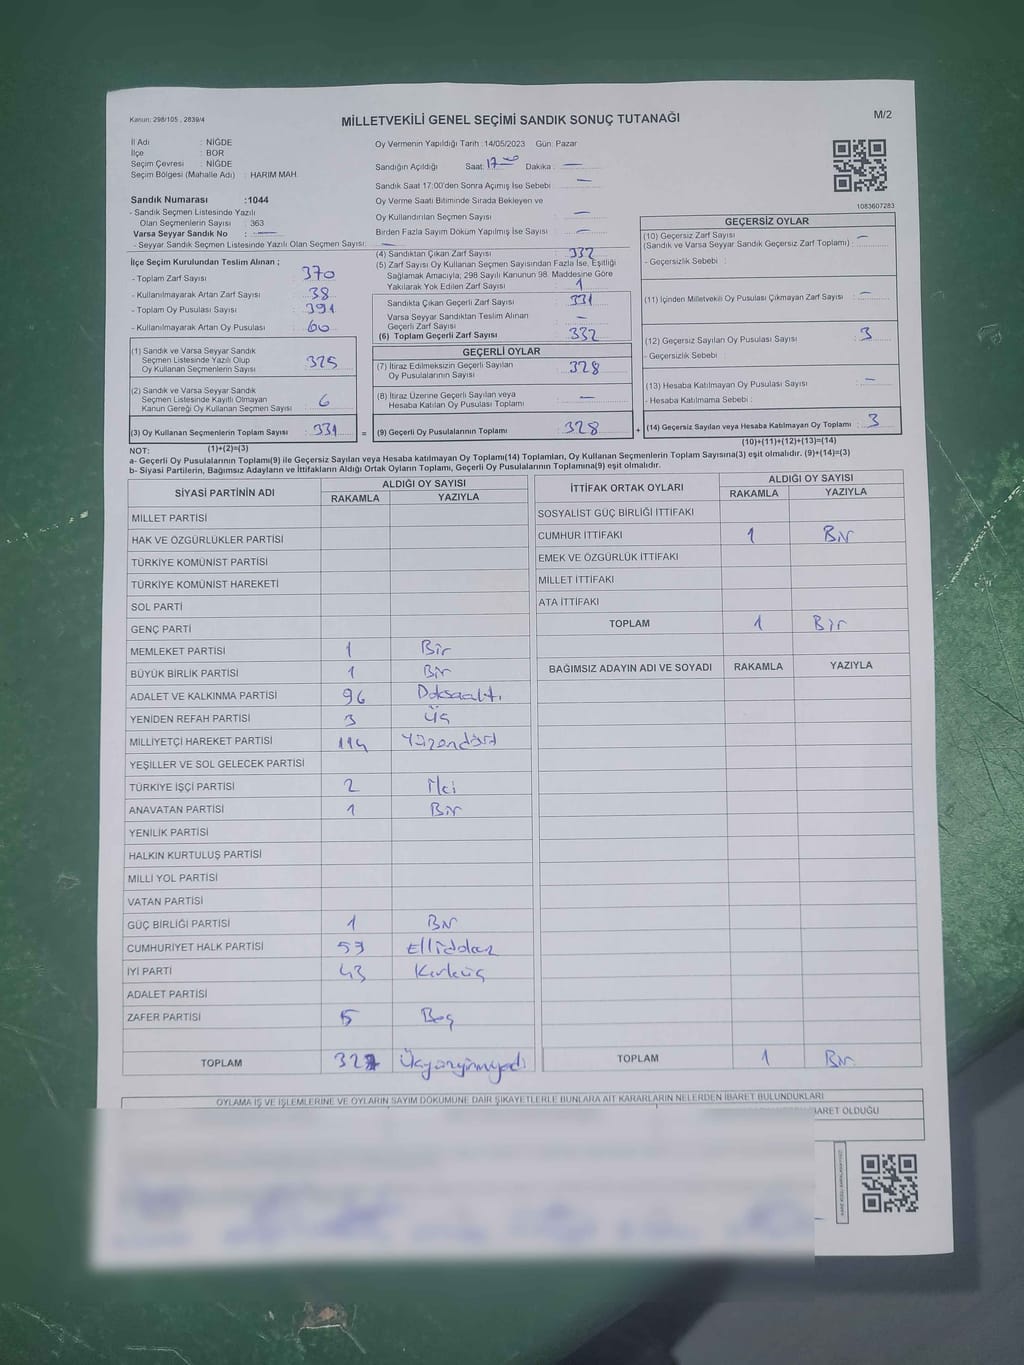 Kanun: 298/105 , 2839/4
MİLLETVEKİLİ GENEL SEÇİMİ SANDIK SONUÇ TUTANAĞI
M/2
İl Adı : NİĞDE
İlçe : BOR
Seçim Çevresi : NİĞDE
Seçim Bölgesi (Mahalle Adı) : HARIM MAH.
Sandık Numarası :1044
- Sandık Seçmen Listesinde Yazılı
Olan Seçmenlerin Sayısı : 363
Varsa Seyyar Sandık No : —
- Seyyar Sandık Seçmen Listesinde Yazılı Olan Seçmen Sayısı: —
İlçe Seçim Kurulundan Teslim Alınan ;
- Toplam Zarf Sayısı : 370
- Kullanılmayarak Artan Zarf Sayısı : 38
- Toplam Oy Pusulası Sayısı : 391
- Kullanılmayarak Artan Oy Pusulası : 60
(1) Sandık ve Varsa Seyyar Sandık
Seçmen Listesinde Yazılı Olup
Oy Kullanan Seçmenlerin Sayısı : 325
(2) Sandık ve Varsa Seyyar Sandık
Seçmen Listesinde Kayıtlı Olmayan
Kanun Gereği Oy Kullanan Seçmen Sayısı : 6
(3) Oy Kullanan Seçmenlerin Toplam Sayısı : 331
Oy Vermenin Yapıldığı Tarih :14/05/2023 Gün: Pazar
Sandığın Açıldığı Saat: 17 Dakika : —
Sandık Saat 17:00'den Sonra Açımış İse Sebebi : —
Oy Verme Saati Bitiminde Sırada Bekleyen ve
Oy Kullandırılan Seçmen Sayısı : —
Birden Fazla Sayım Döküm Yapılmış İse Sayısı : —
(4) Sandıktan Çıkan Zarf Sayısı : 332
(5) Zarf Sayısı Oy Kullanan Seçmen Sayısından Fazla İse, Eşitliği
Sağlamak Amacıyla; 298 Sayılı Kanunun 98. Maddesine Göre
Yakılarak Yok Edilen Zarf Sayısı : 1
Sandıkta Çıkan Geçerli Zarf Sayısı : 331
Varsa Seyyar Sandıktan Teslim Alınan
Geçerli Zarf Sayısı : —
(6) Toplam Geçerli Zarf Sayısı : 332
GEÇERLİ OYLAR
(7) İtiraz Edilmeksizin Geçerli Sayılan
Oy Pusulalarının Sayısı : 328
(8) İtiraz Üzerine Geçerli Sayılan veya
Hesaba Katılan Oy Pusulası Toplamı : —
= (9) Geçerli Oy Pusulalarının Toplamı : 328
1083607283
GEÇERSİZ OYLAR
(10) Geçersiz Zarf Sayısı : —
(Sandık ve Varsa Seyyar Sandık Geçersiz Zarf Toplamı)
- Geçersizlik Sebebi :
(11) İçinden Milletvekili Oy Pusulası Çıkmayan Zarf Sayısı : —
(12) Geçersiz Sayılan Oy Pusulası Sayısı : 3
- Geçersizlik Sebebi :
(13) Hesaba Katılmayan Oy Pusulası Sayısı : —
- Hesaba Katılmama Sebebi :
+ (14) Geçersiz Sayılan veya Hesaba Katılmayan Oy Toplamı : 3
NOT: (1)+(2)=(3)
(10)+(11)+(12)+(13)=(14)
a- Geçerli Oy Pusulaları Toplamı(9) ile Geçersiz Sayılan veya Hesaba katılmayan Oy Toplamı(14) Toplamları, Oy Kullanan Seçmenlerin Toplam Sayısına(3) eşit olmalıdır. (9)+(14)=(3)
b- Siyasi Partilerin, Bağımsız Adayların ve İttifakların Aldığı Ortak Oyların Toplamı, Geçerli Oy Pusulalarının Toplamına(9) eşit olmalıdır.
SİYASİ PARTİNİN ADI
ALDIĞI OY SAYISI
RAKAMLA YAZIYLA
MİLLET PARTİSİ
HAK VE ÖZGÜRLÜKLER PARTİSİ
TÜRKİYE KOMÜNİST PARTİSİ
TÜRKİYE KOMÜNİST HAREKETİ
SOL PARTİ
GENÇ PARTİ
MEMLEKET PARTİSİ 1 Bir
BÜYÜK BİRLİK PARTİSİ 1 Bir
ADALET VE KALKINMA PARTİSİ 96 Doksaaltı
YENİDEN REFAH PARTİSİ 3 Üç
MİLLİYETÇİ HAREKET PARTİSİ 114 Yüzondört
YEŞİLLER VE SOL GELECEK PARTİSİ
TÜRKİYE İŞÇİ PARTİSİ 2 İki
ANAVATAN PARTİSİ 1 Bir
YENİLİK PARTİSİ
HALKIN KURTULUŞ PARTİSİ
MİLLİ YOL PARTİSİ
VATAN PARTİSİ
GÜÇ BİRLİĞİ PARTİSİ 1 Bir
CUMHURİYET HALK PARTİSİ 59 Ellidokuz
İYİ PARTİ 43 Kırküç
ADALET PARTİSİ
ZAFER PARTİSİ 5 Beş
TOPLAM 327 Üçyüzyirmiyedi
İTTİFAK ORTAK OYLARI
ALDIĞI OY SAYISI
RAKAMLA YAZIYLA
SOSYALİST GÜÇ BİRLİĞİ İTTİFAKI
CUMHUR İTTİFAKI 1 Bir
EMEK VE ÖZGÜRLÜK İTTİFAKI
MİLLET İTTİFAKI
ATA İTTİFAKI
TOPLAM 1 Bir
BAĞIMSIZ ADAYIN ADI VE SOYADI RAKAMLA YAZIYLA
TOPLAM 1 Bir
OYLAMA İŞ VE İŞLEMLERİNE VE OYLARIN SAYIM DÖKÜMÜNE DAİR ŞİKAYETLERLE BUNLARA AİT KARARLARIN NELERDEN İBARET BULUNDUKLARI
İBARET OLDUĞU